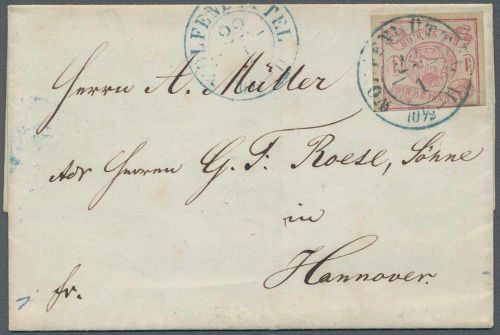 WOLFENBÜTTEL
22
1
WOLFENBÜTTEL
1
10½
Herrn A. Müller
Adr Herren G. F. Roese, Söhne
in
Hannover.
fr.